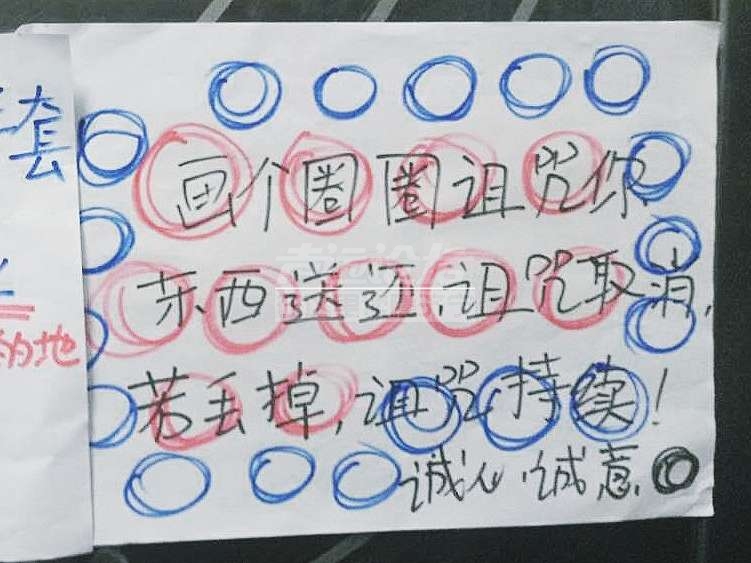 套
的地
画个圈圈诅咒你
东西送还,诅咒取消,
若丢掉,诅咒持续!
诚心诚意